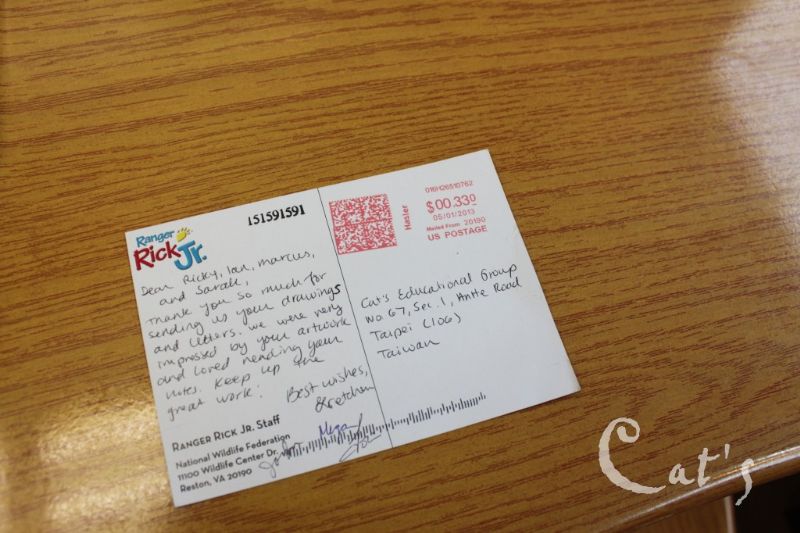 151591591
Ranger
Rick Jr.
Dear Ricky, Ian, Marcus,
and Sarah,
Thank you so much for
sending us your drawings
and letters. We were very
impressed by your artwork
and loved reading your
notes. Keep up the
great work!
Best wishes,
Gretchen
Megan
RANGER RICK JR. STAFF
National Wildlife Federation
11100 Wildlife Center Dr.
Reston, VA 20190
Hasler
016H26510762
$00.330
05/01/2013
Mailed From 20190
US POSTAGE
Cat's Educational Group
No. 67, Sec. 1, Anhe Road
Taipei (106)
Taiwan
Cat's